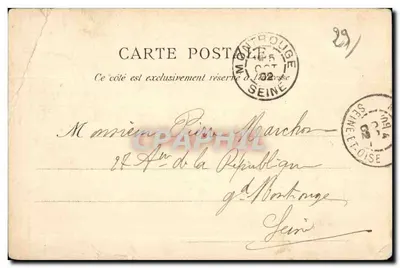 29)
CARTE POSTALE
Ce côté est exclusivement réservé à l'adresse
MONTROUGE
5
OCT
02
SEINE
SEINE-ET-OISE
Monsieur Pierre Marchon
27 Av de la République
gd Montrouge
Seine